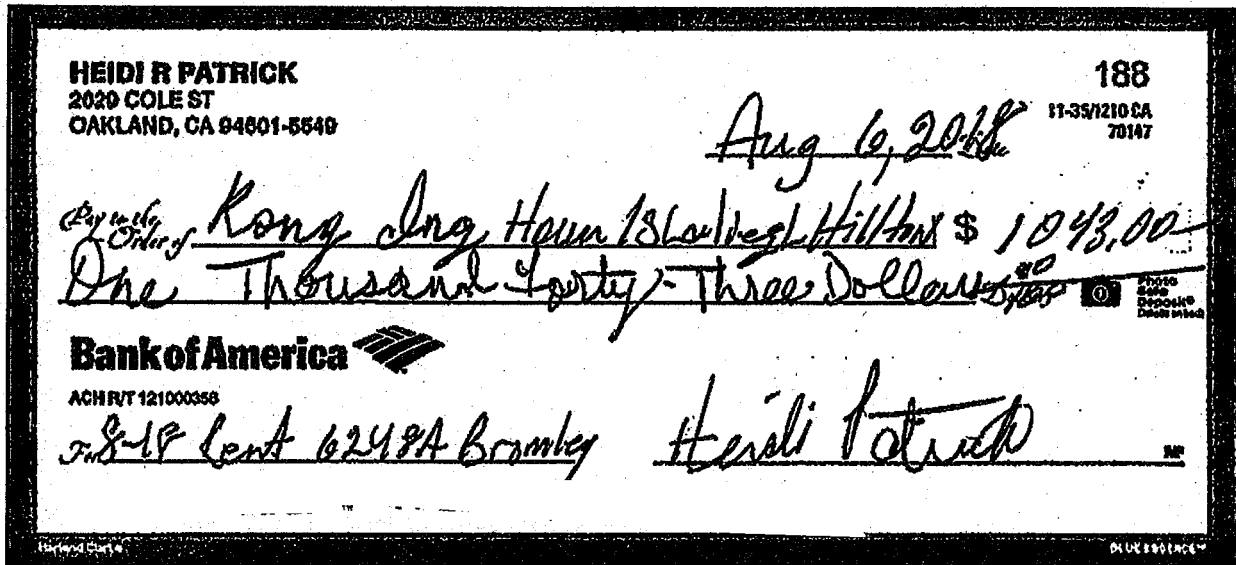 HEIDI R PATRICK
188
2029 COLE ST
OAKLAND, CA 94601-5549
11-35/1210 CA
70147
Aug 6, 2018
Pay to the Order of Kong Ing Houn $ 1043.00
One Thousand Forty-Three Dollars
Photo Safe Deposit®
Bank of America
ACH R/T 121000358
For 8-18 Rent 6248A Bromley
Heidi Patrick
MP
Harland Clarke